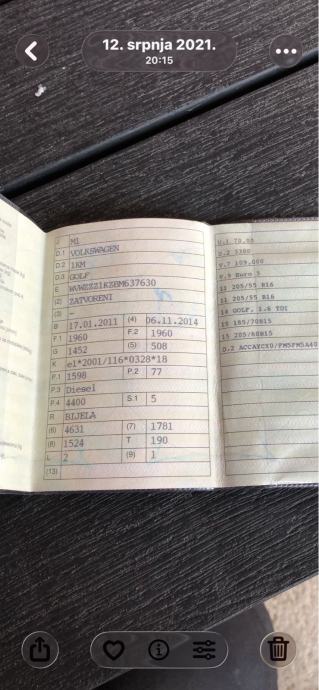 12. srpnja 2021.
20:15
J M1
D.1 VOLKSWAGEN
D.2 1KM
D.3 GOLF
E WVWZZZ1KZBM637630
(2) ZATVORENI
(3) -
B 17.01.2011 (4) 06.11.2014
F.1 1960 F.2 1960
G 1452 (5) 508
K e1*2001/116*0328*18
P.1 1598 P.2 77
P.3 Diesel
P.4 4400 S.1 5
R BIJELA
(6) 4631 (7) 1781
(8) 1524 T 190
L 2 (9) 1
(13)
U.1 78.00
U.2 3300
V.7 109.000
V.9 Euro 5
11 205/55 R16
11 205/55 R16
14 GOLF, 1.6 TDI
15 185/70R15
15 205/60R15
D.2 ACCAYCX0/FM5FM5A40